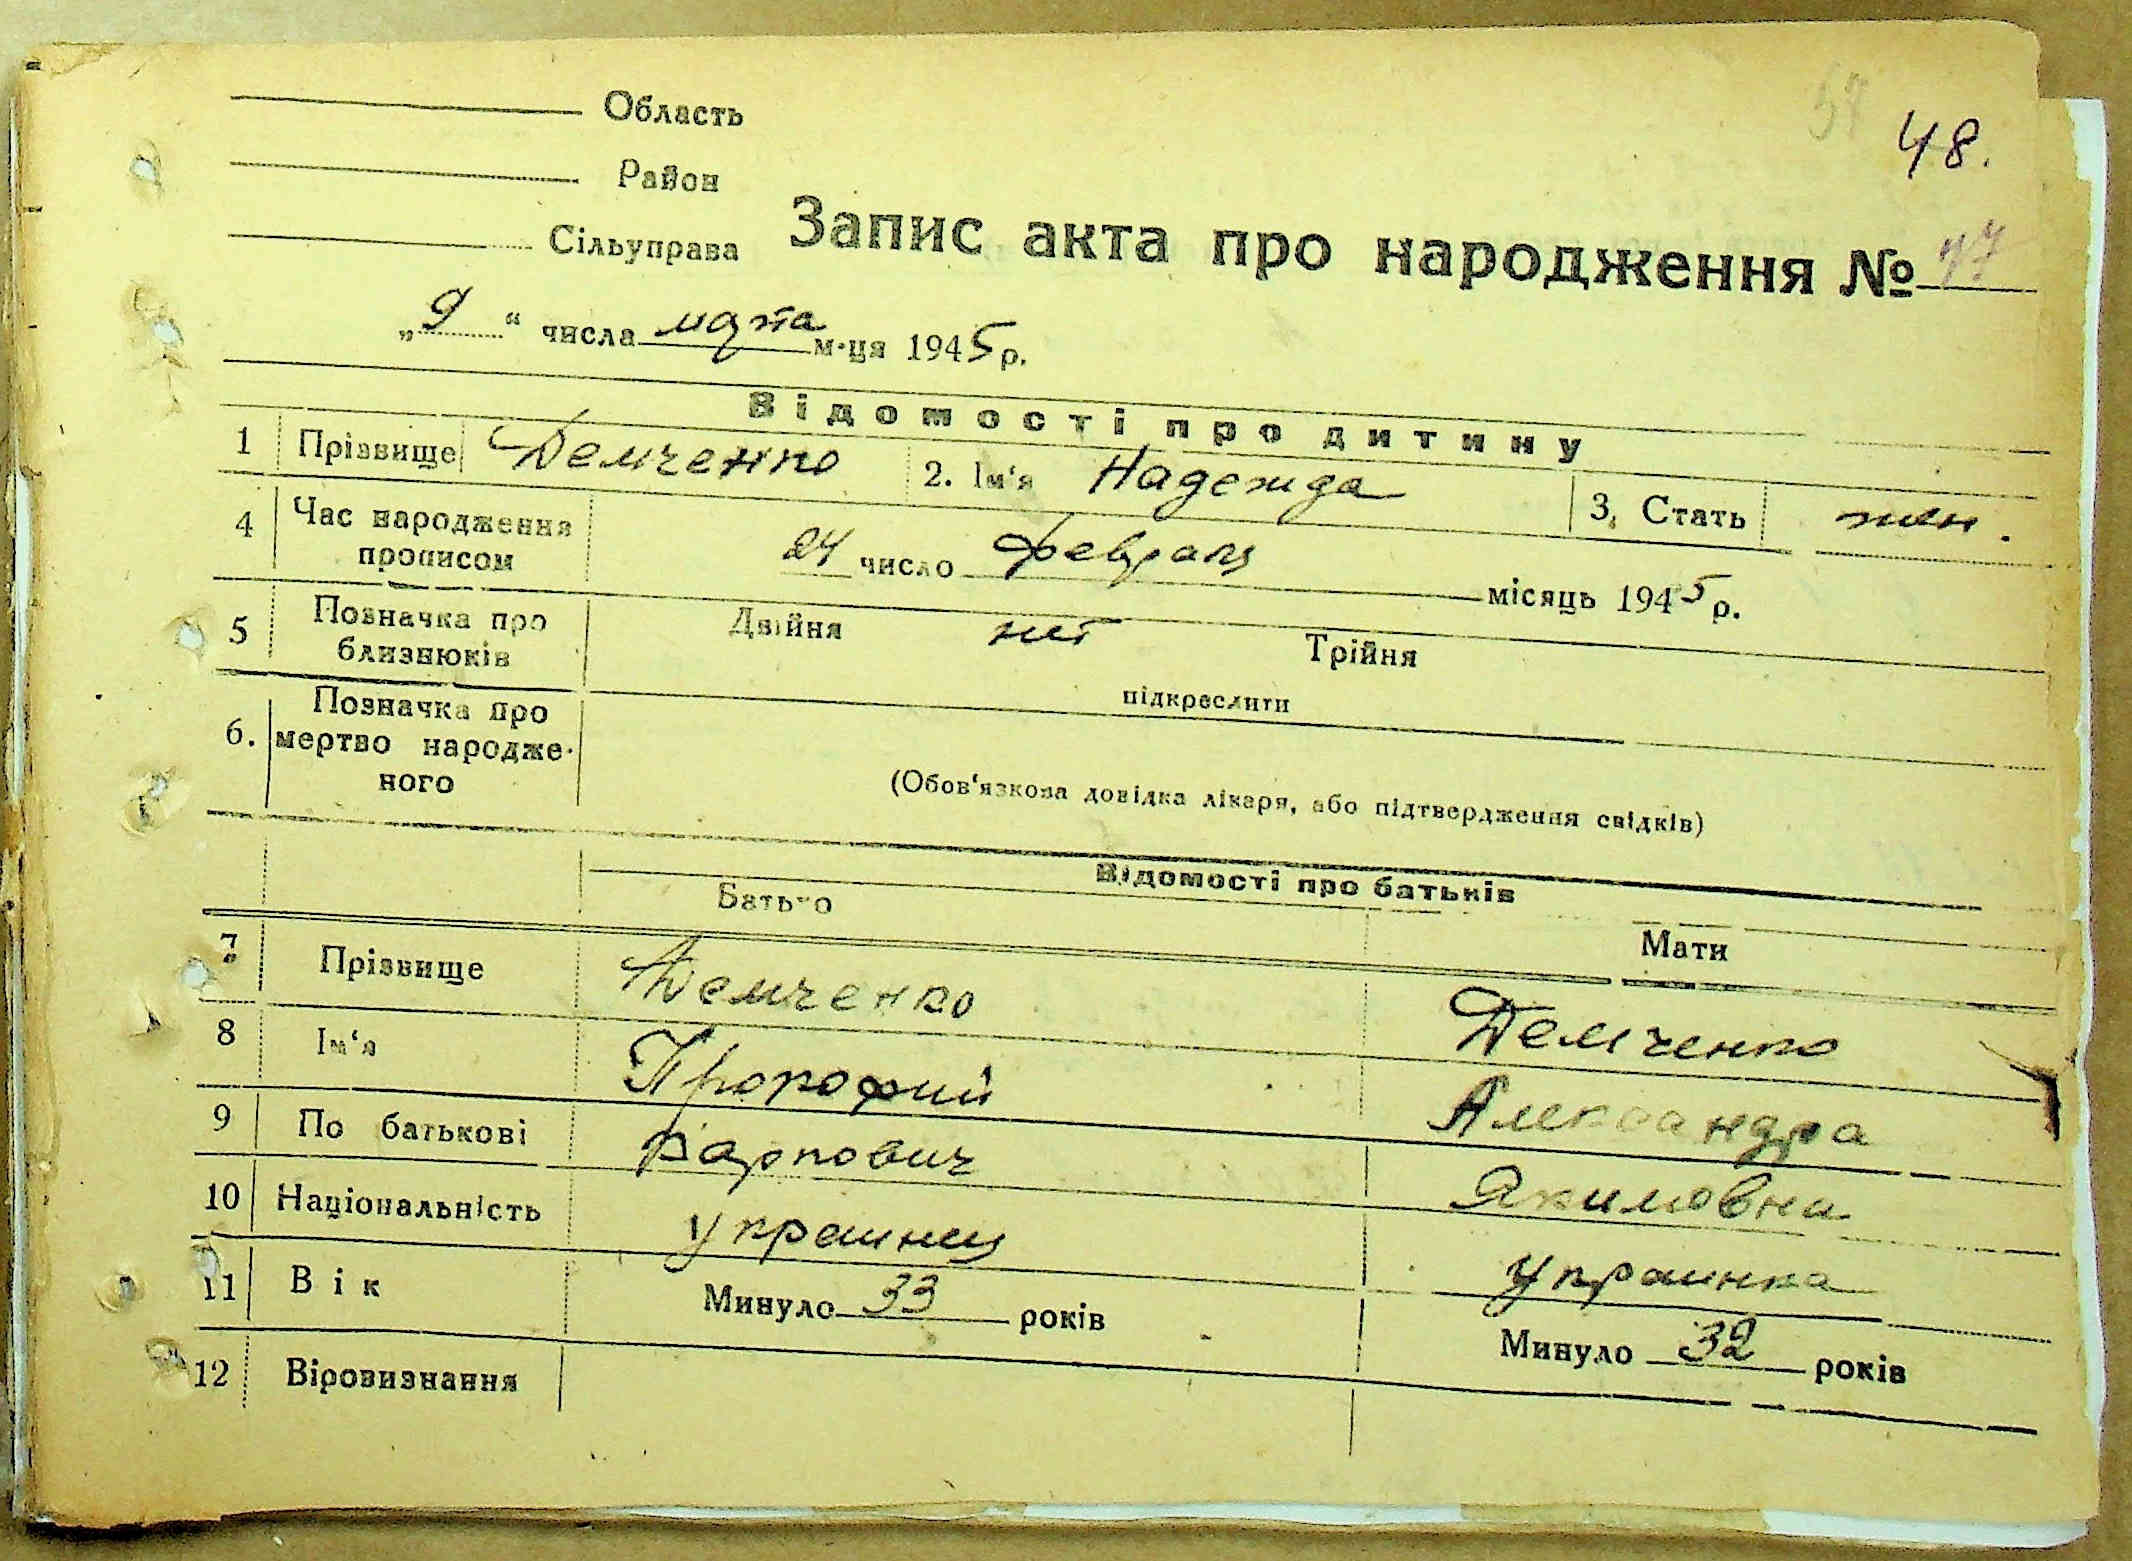 Область
48.
Район
Сільуправа Запис акта про народження № 47
„9“ числа марта м-ця 1945 р.
Відомості про дитину
1 Прізвище Демченко 2. Ім‘я Надежда 3. Стать жен.
4 Час народження прописом 24 число февраля місяць 1945 р.
5 Позначка про близнюків Двійня нет Трійня
підкреслити
6. Позначка про мертво народже-
ного
(Обов‘язкова довідка лікаря, або підтвердження свідків)
Відомості про батьків
Батько Мати
7 Прізвище Демченко Демченко
8 Ім‘я Прокофий Александра
9 По батькові Карпович Якимовна
10 Національність украинец украинка
11 Вік Минуло 33 років Минуло 32 років
12 Віровизнання